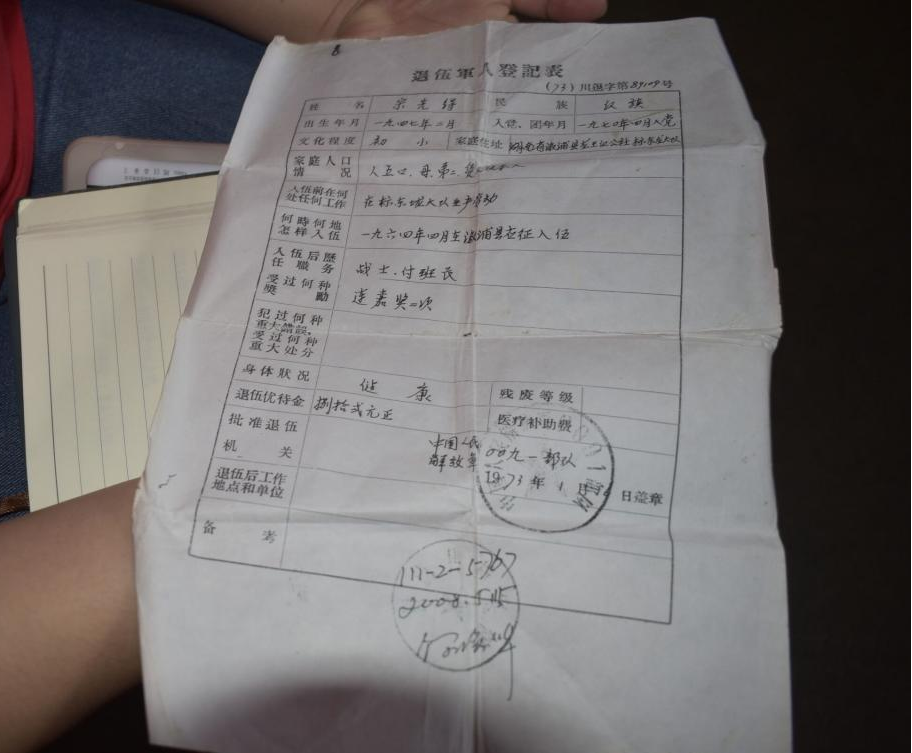 退伍軍人登記表
(73)川退字第89109号
姓名 宗光绪 民族 汉族
出生年月 一九四七年二月 入党、团年月 一九七〇年四月入党
文化程度 初小 家庭住址 湖南省溆浦县
家庭人口情况 人五口、母、弟二
入伍前在何处任何工作 在标东垅大队生产劳动
何時何地怎样入伍 一九六四年四月在溆浦县应征入伍
入伍后歷任職务 战士、付班长
受过何种奬勵 连嘉奖二次
犯过何种重大错误,受过何种重大处分
身体狀况 健康 残废等级
退伍优待金 捌拾弍元正 医疗补助费
批准退伍机关 中国人民解放军 00九一部队
1973年1月 日盖章
退伍后工作地点和单位
备考
111-2-5767
2008.5.15